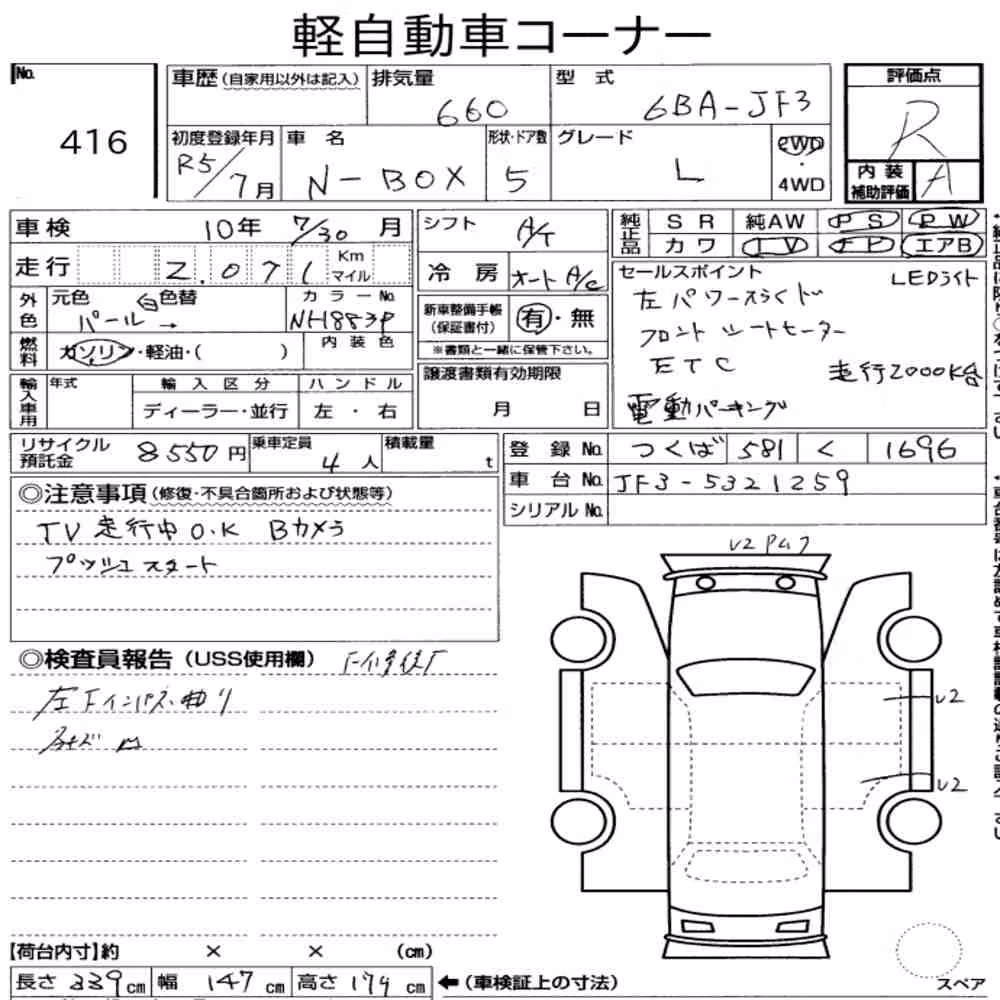 軽自動車コーナー
No. 416
車歴(自家用以外は記入) 排気量 660 型式 6BA-JF3 評価点 R
初度登録年月 R5/7月 車名 N-BOX 形状・ドア数 5 グレード L 2WD・4WD 内装補助評価 A
車検 10年 7/30月 シフト A/T 純正品 SR 純AW PS PW
カワ TV ナビ エアB
走行 2,071 Km マイル 冷房 オートA/C
セールスポイント LEDライト
左パワースライド
フロントシートヒーター
ETC 走行2000K台
電動パーキング
外色 元色 パール→ 色替 カラーNo. NH883P
新車整備手帳(保証書付) 有・無
※書類と一緒に保管下さい。
燃料 ガソリン・軽油・( ) 内装色
譲渡書類有効期限 月 日
輸入車用 年式 輸入区分 ハンドル
ディーラー・並行 左・右
リサイクル預託金 8550円 乗車定員 4人 積載量 t
登録No. つくば 581 く 1696
車台No. JF3-5321259
シリアルNo.
◎注意事項(修復・不具合箇所および状態等)
TV走行中O.K Bカメラ
プッシュスタート
◎検査員報告(USS使用欄)
左Fインパネ曲り
U2
U2
【荷台内寸】約 × × (cm)
長さ 339cm 幅 147cm 高さ 179cm ←(車検証上の寸法)
スペア